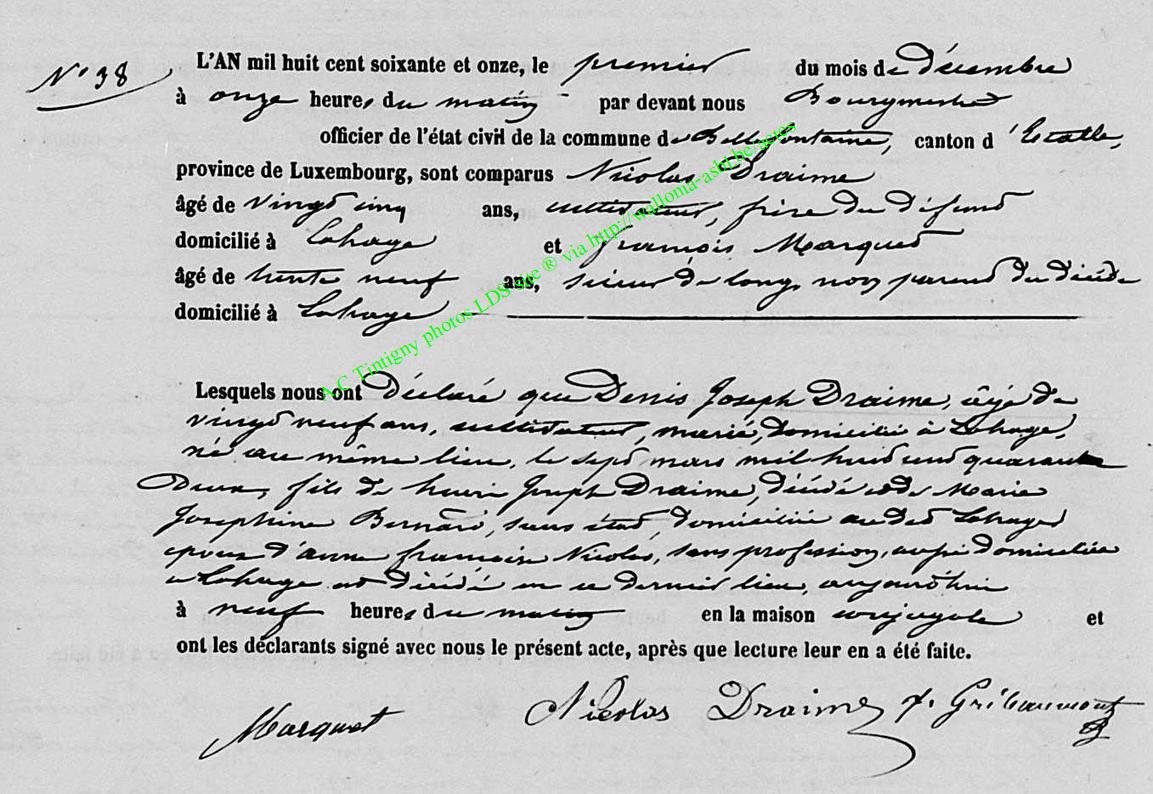 N° 38
L'AN mil huit cent soixante et onze, le premier du mois de Décembre
à onze heures du matin par devant nous Bourgmestre
officier de l'état civil de la commune de Bellefontaine, canton d'Etalle,
province de Luxembourg, sont comparus Nicolas Draime
âgé de vingt cinq ans, cultivateur, frère du défunt
domicilié à Lahage et françois Marquet
âgé de trente neuf ans, scieur de long, non parent du décédé
domicilié à Lahage
A.C Tintigny photos LDS site ® via http://wallonia-asbl.be/actes
Lesquels nous ont déclaré que Denis Joseph Draime, âgé de
vingt neuf ans, cultivateur, marié, domicilié à Lahage,
né au même lieu, le sept mars mil huit cent quarante
Deux, fils de henri Joseph Draime, décédé et de Marie
Josephine Bernard, sans état domiciliée au dit Lahage
epoux d'anne françoise Nicolas, sans profession, aussi domiciliée
a Lahage est décédé en ce dernier lieu, aujourd'hui
à neuf heures du matin en la maison conjugale et
ont les déclarants signé avec nous le présent acte, après que lecture leur en a été faite.
Marquet Nicolas Draime f. Gribaumont